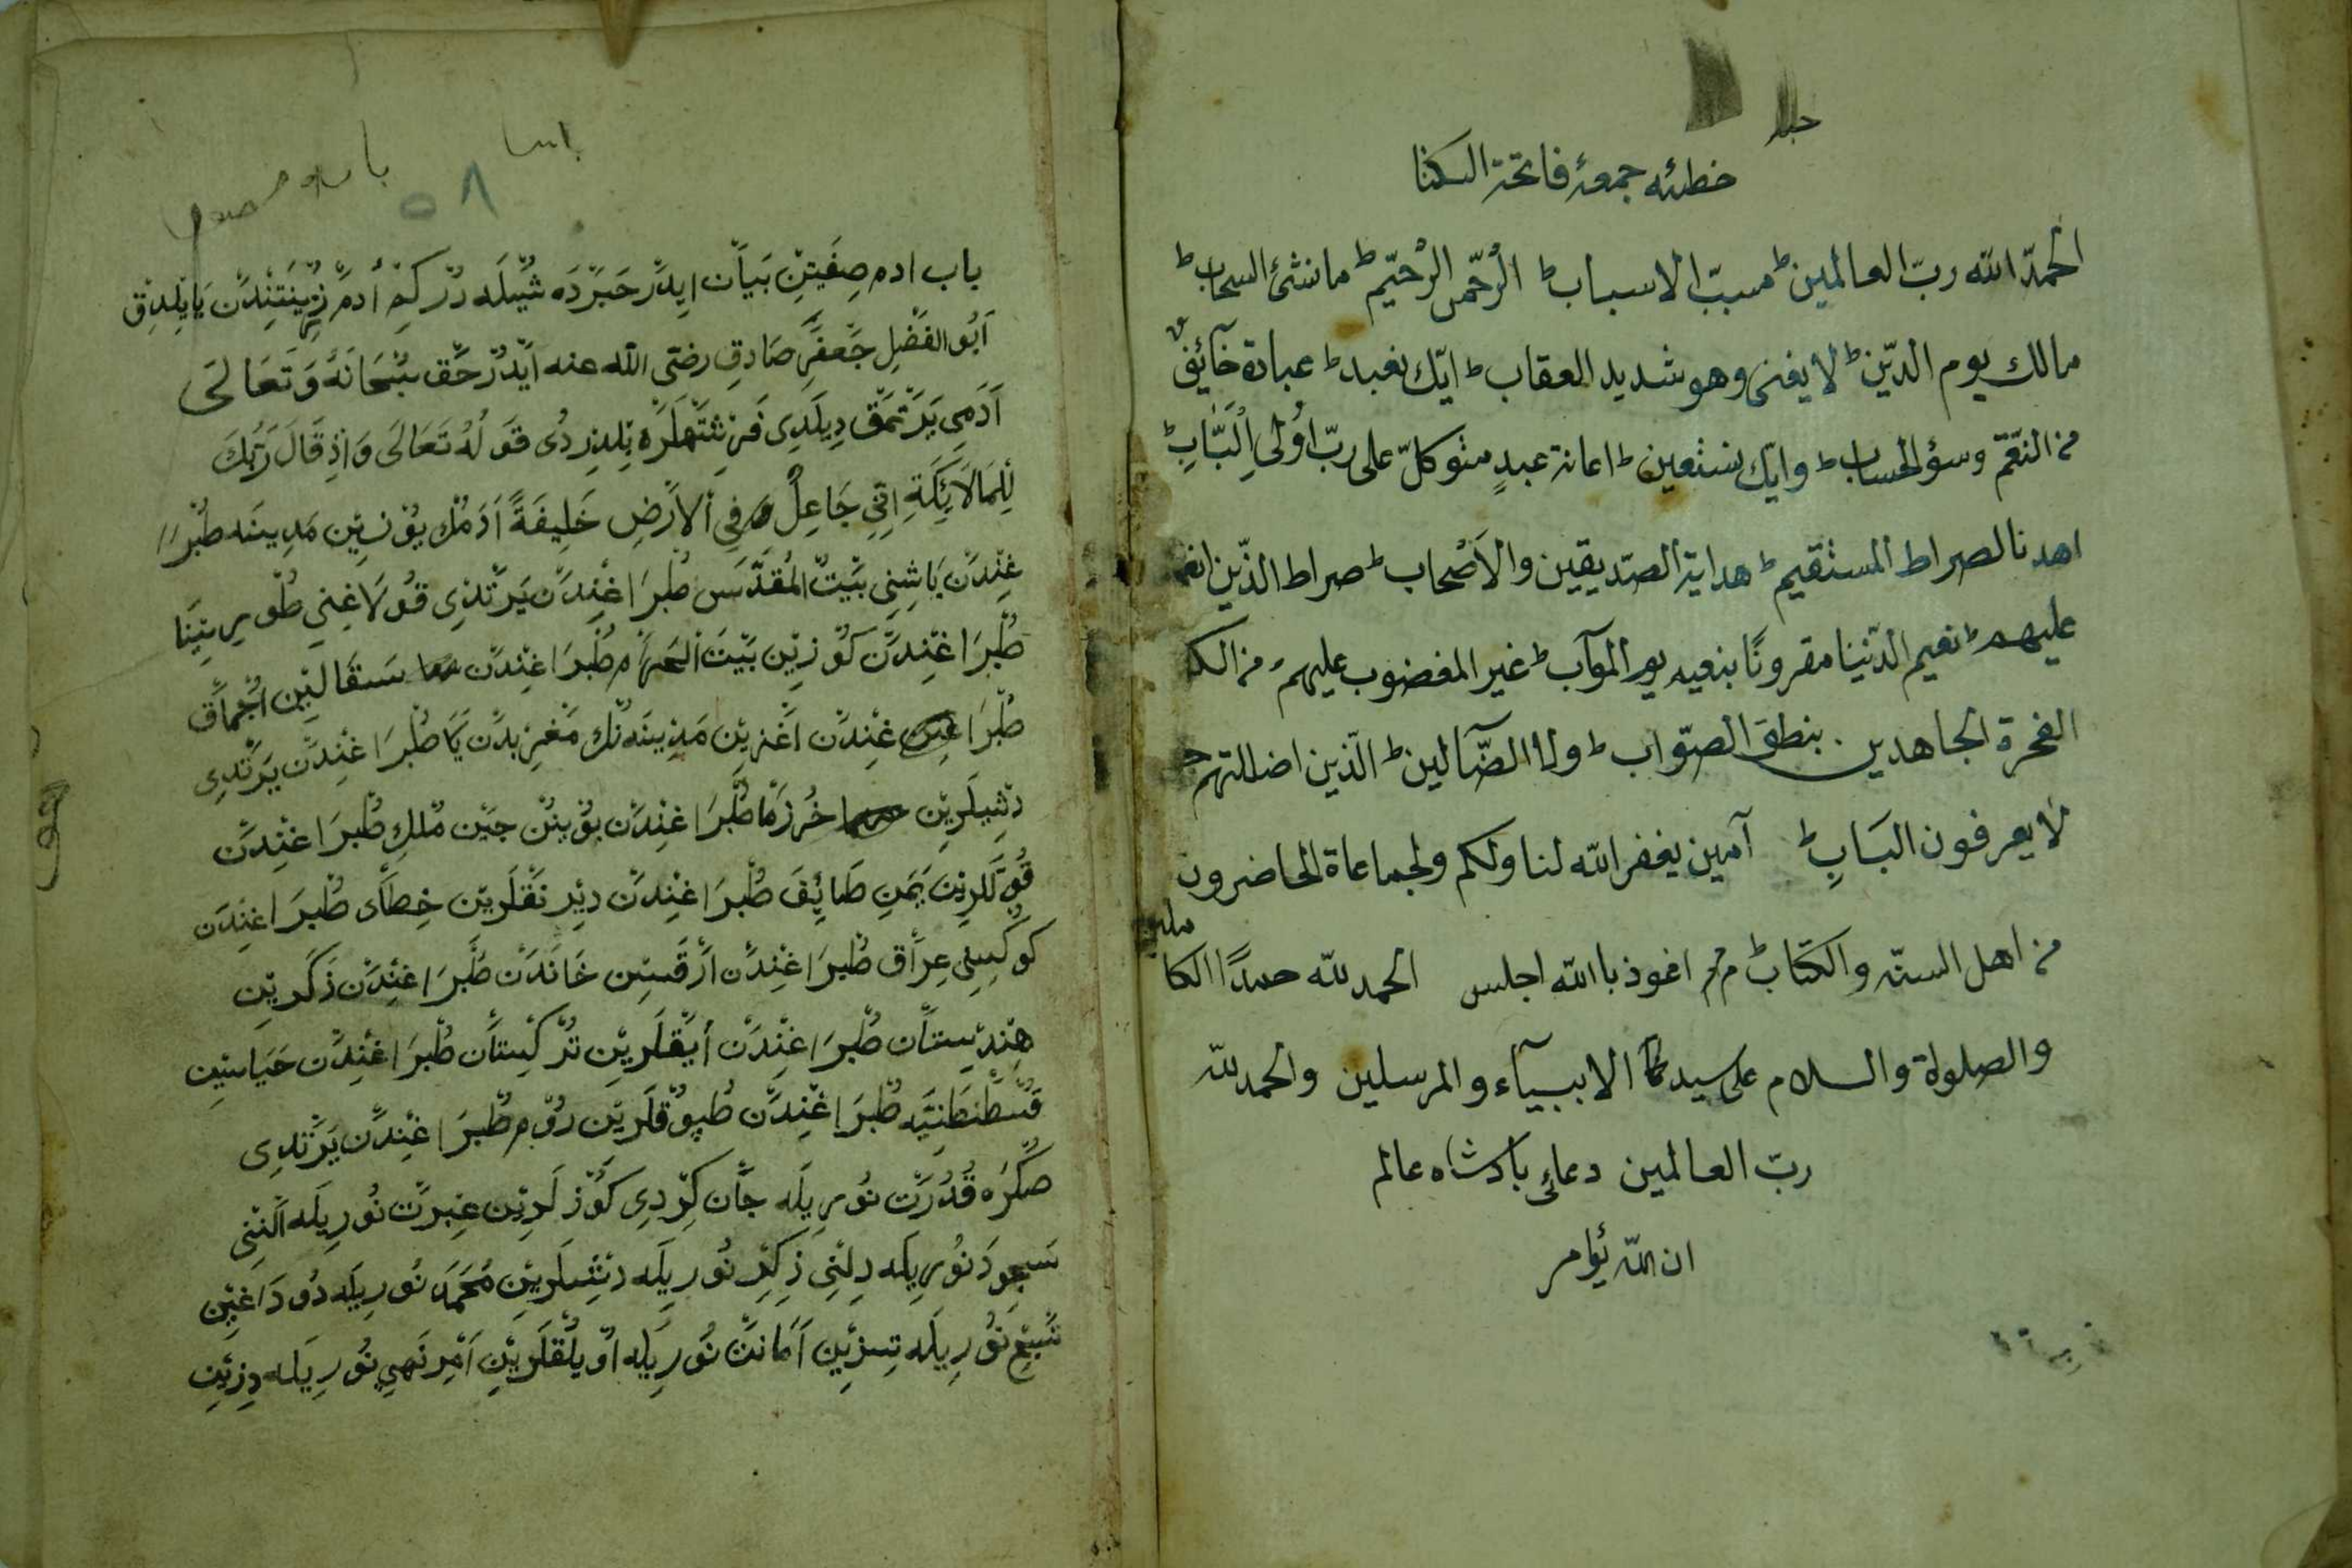 خطبۀ جمعۀ فاتحة الكتا
الحمد الله ربّ العالمين ط مسبّب الاسباب ط الرّحمن الرّحيم ط ما نشئ السحاب ط
مالك يوم الدّين ط لا يفنى وهو شديد العقاب ط ايّك نعبد ط عبادة خآئف
من النقم وسؤ الحساب ط وايّك نستعين ط اعانة عبدٍ متوكلّ على ربّ اُولى الْبَّابِ ط
اهدنا الصراط المستقيم ط هداية الصدّيقين والاَصْحاب ط صراط الذّين انعم
عليهم ط نعيم الدّنيا مقرونًا بنعيم يوم المآب ط غير المغضوب عليهم من الكـ
الفجرة الجاهدين بنطق الصوّاب ط ولا الضّآلين ط الّذين اضللتهم
لا يعرفون البَابِ ط آمين يغفر الله لنا ولكم ولجماعاة الحاضرون
من اهل السنّه والكتاب ط اغوذ با الله اجلس الحمد للّه حمدًا الكاملين
والصلواة والسلام على سيدنا الانبيآء والمرسلين والحمد للّه
ربّ العالمين دعائ بادشاه عالم
ان الله يؤامر
۵۸
باب ادم صِفَتِنْ بَيَاْن ايدَرْ حَبَرْدَه شُيْلَه دُرْ كِمْ اٰدَمْ زِينَتِنْدَنْ يَاپلِدِقْ
اَبُو الفَضْلِ جَعْفَرِ صَادِقِ رضى الله عنه اَيْدُرْ حَقْ سُبْحَانَهُ وَتَعَالَى
اَدَمِى يَرَتْمَقْ دِيلَدِى فَرِشْتَهلَرَه بِلدِرْدُى قَوْلُهُ تَعَالَى وَاِذْ قَالَ رَبُّكَ
لِلْمَلَائِكَةِ اِنِّي جَاعِلٌ فِي الْاَرْضِ خَلِيفَةً اَدَمُكْ يُوْزِيْن مَدِينَه طُبْرَا
غِنْدَنْ بَاشِنِي بَيْتُ المُقَدَّسْ طُبْرَاغِنْدَنْ يَرَتْدِى قُولَاغِنِي طُورِ سِينَا
طُبْرَاغِنْدَنْ كَوْزِيْن بَيْتَ الحَرَامْ طُبْرَاغِنْدَنْ سَقَالِيْن اُجْمَاقْ
طُبْرَا غِنْدَنْ اَغْزِيْن مَدِينَهنُكْ مَغْرِبِنْدَنْ يَكَا طُبْرَاغِنْدَنْ يَرَتْدِى
دِشْلَرِيْن خُرْزَمَا طُبْرَاغِنْدَنْ بُوْيِنُنْ جِيْن مُلْكِ طُبْرَاغِنْدَنْ
قُوْلَلرِيْن يَمَنِ طَائِفَ طُبْرَاغِنْدَنْ دِيْرنَقْلَرِيْن خِطَاَى طُبْرَاغِنْدَنْ
كُوكْسِنِي عِرَاْق طُبْرَاغِنْدَنْ اَرْقَسِيْن خَانَدَنْ طُبْرَاغِنْدَنْ ذَكَرِيْن
هِنْدِسِتَاْن طُبْرَاغِنْدَنْ اَيَقْلَرِيْن تُرْكِسْتَاْن طُبْرَاغِنْدَنْ حَيَاسِيْن
قُسْطَنْطَنِيَّه طُبْرَاغِنْدَنْ طُپُوقْلَرِيْن رُوْم طُبْرَاغِنْدَنْ يَرَتْدِى
صُكْرَه قُدْرَتْ نُورِيلَه جَاْن كِرْدِى كَوْزلَرِيْن عِبْرَتْ نُورِيلَه اَلْنِنِى
سُجُودَ نُورِيلَه دِلْنِي ذِكِرْ نُورِيلَه دِشْلَرِيْن مُحَمَّدَ نُورِيلَه دُودَاغِيْن
تَسْبِيْح نُورِيلَه تِيزِيْن اَمَانَتْ نُورِيلَه اُويْلُقْلَرِيْن اَمْرِ نَهِي نُورِيلَه دِزِيْن